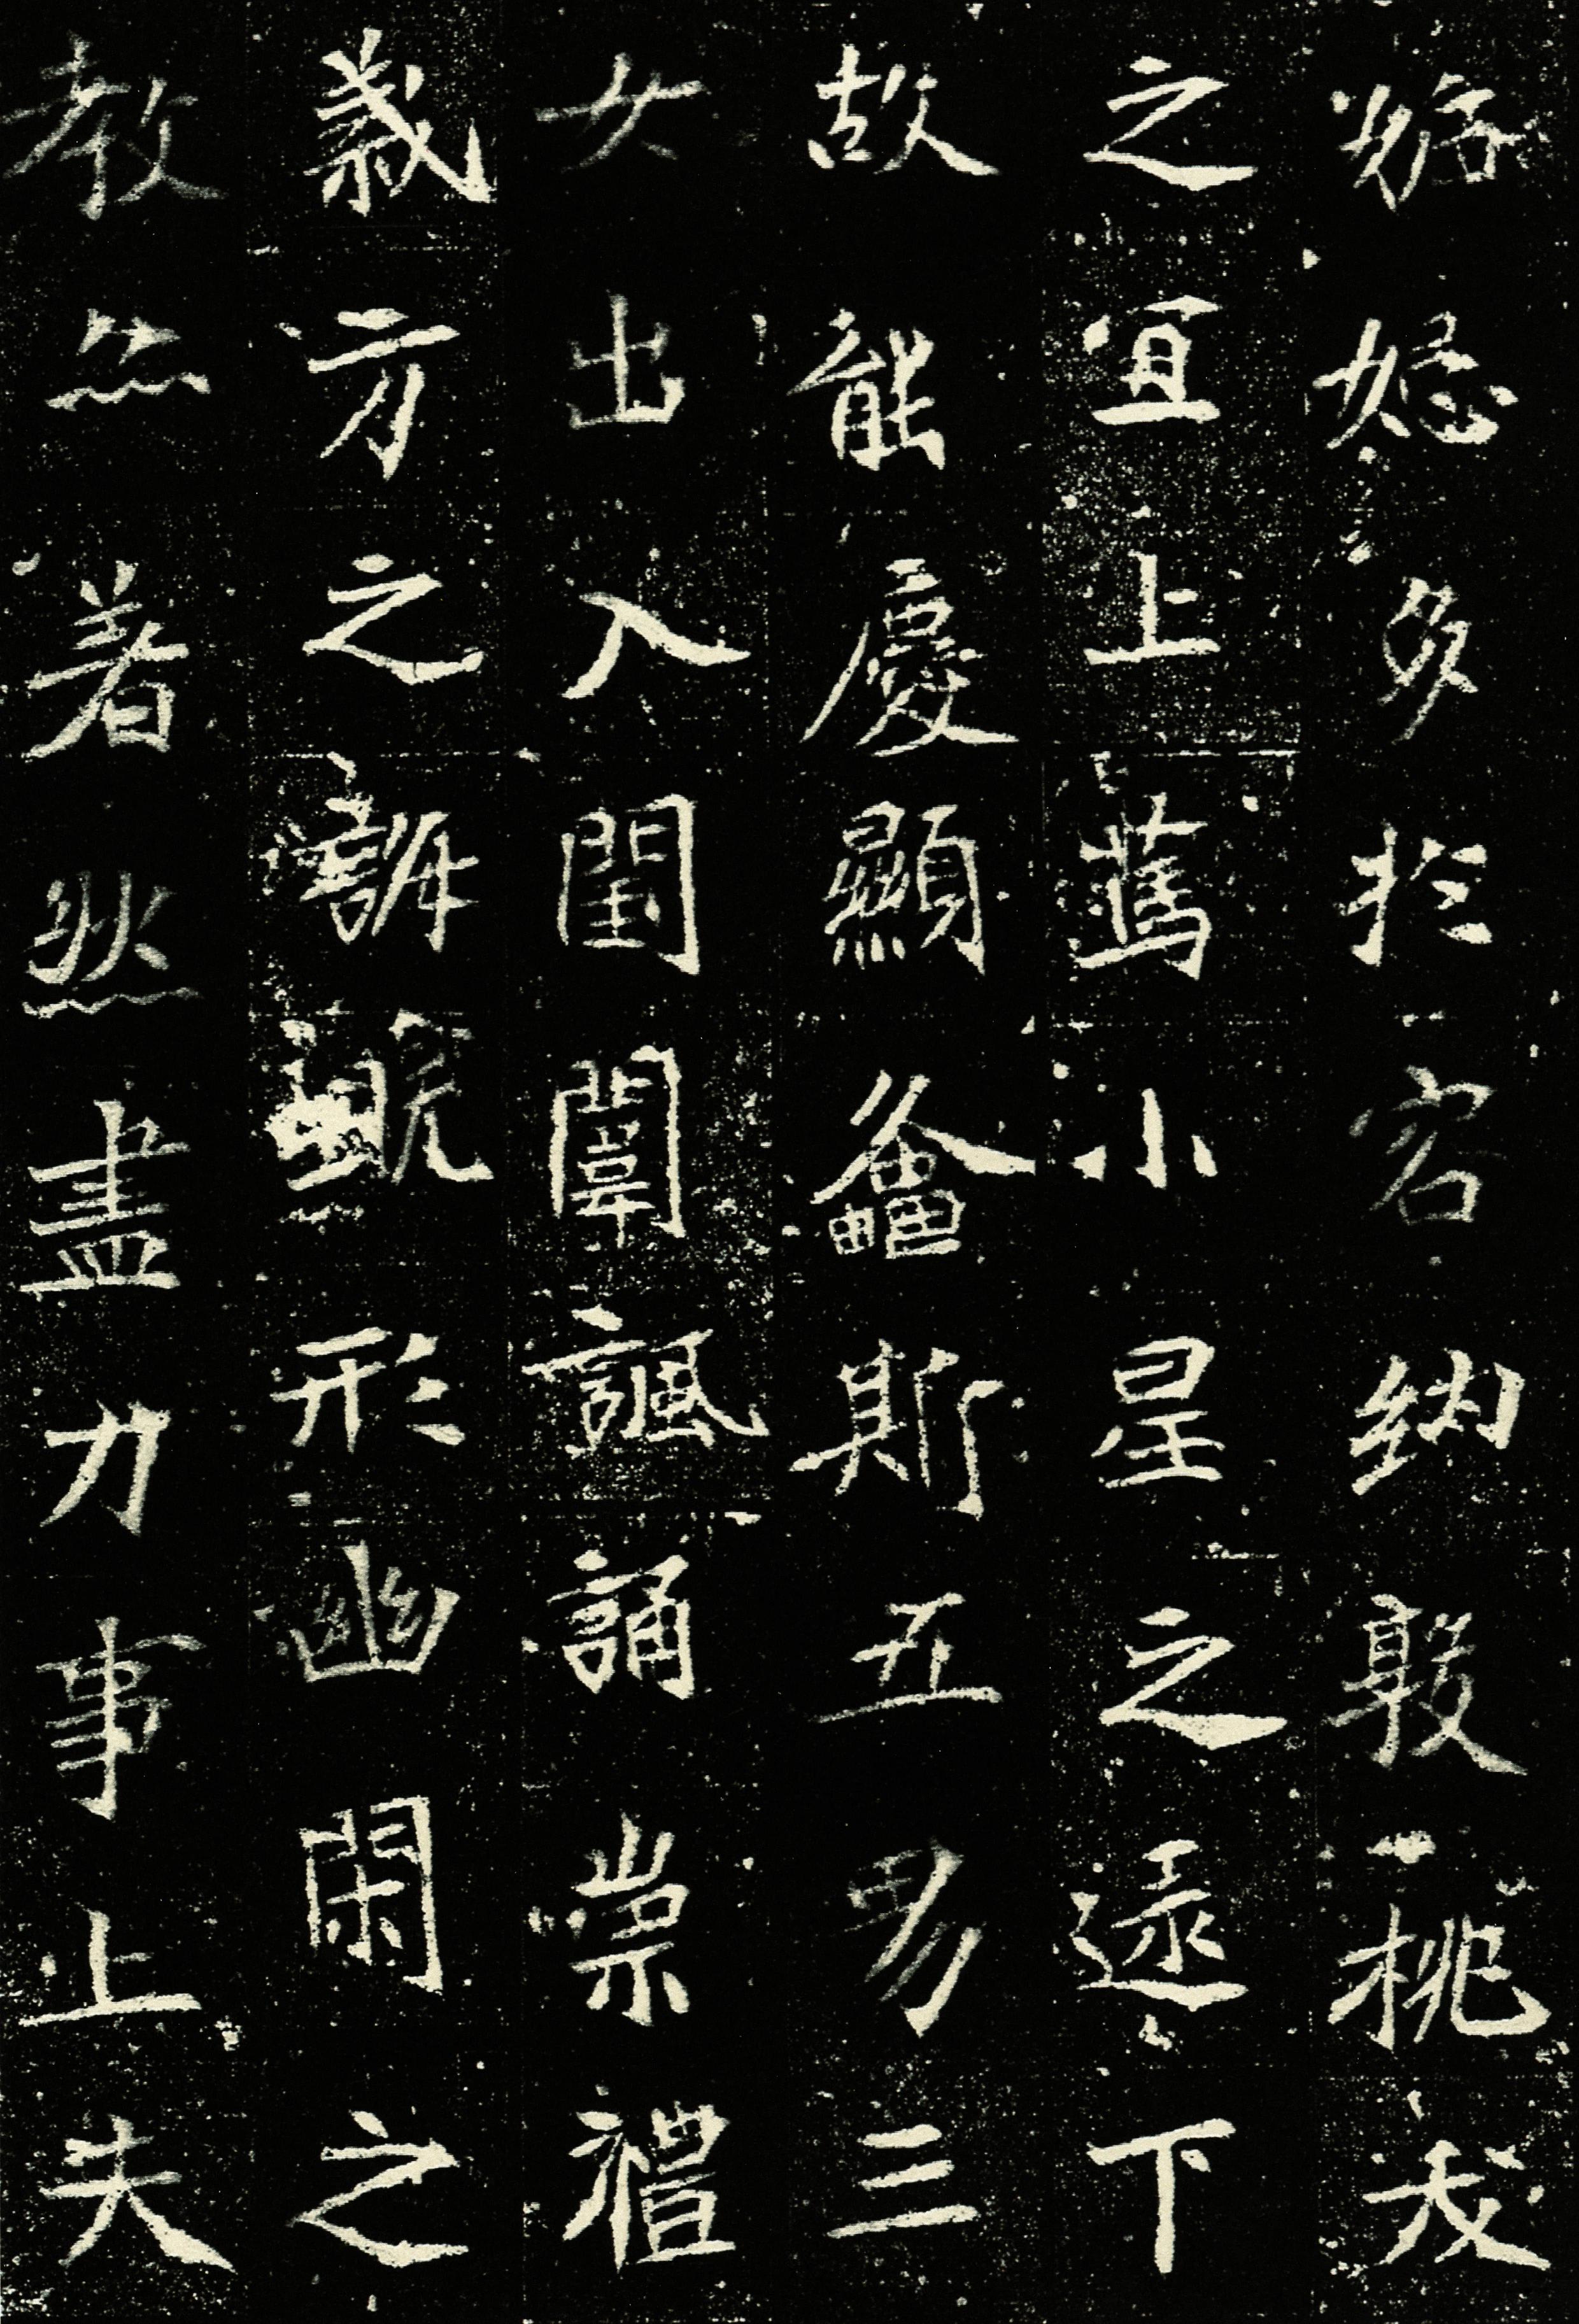 多於容納敦桃夭
之宜上篤小星之逮下
故能慶顯螽斯五男三
女出入閨闈諷誦崇禮
義方之形幽閑之
教亦著然盡力事上夫